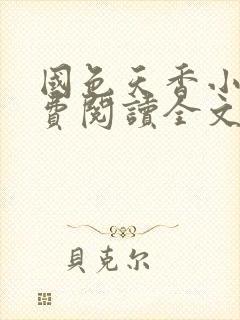 國色天香小
費閱讀全文
貝克尔